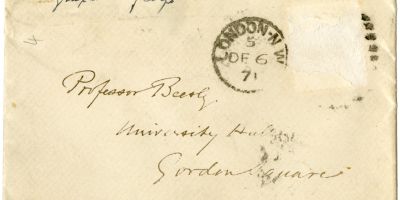 LONDON·N.W
5
DE 6
71
Professor Beesly
University Hall
Gordon Square